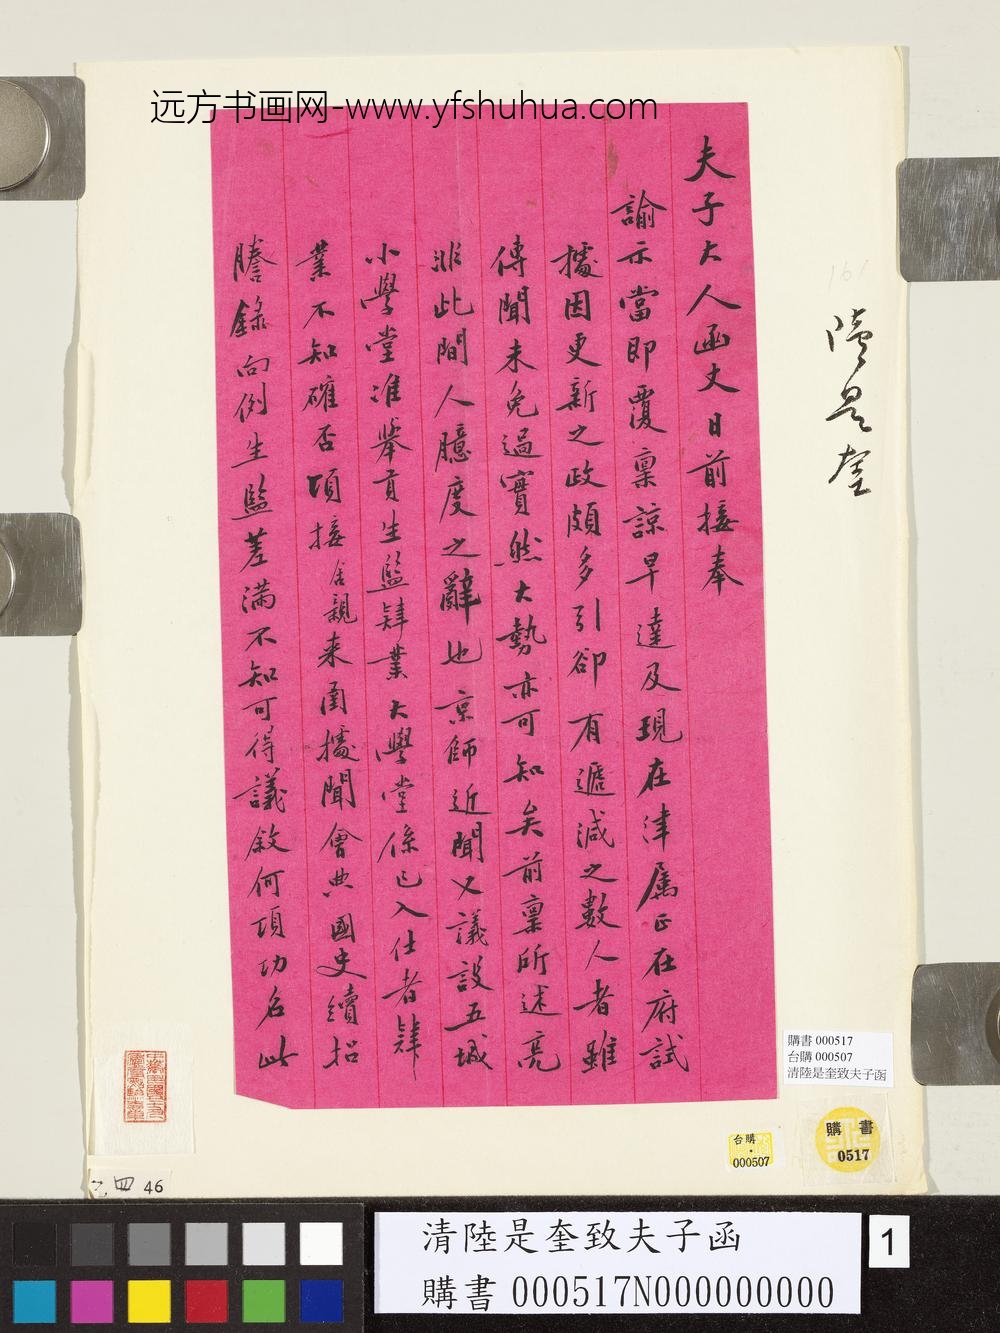 远方书画网-www.yfshuhua.com
夫子大人函丈日前接奉
諭示當即覆禀諒早達及現在津屬正在府試
據因更新之政頗多引卻有遞減之數人者雖
傳聞未免過實然大勢亦可知矣前禀所述亮
非此間人臆度之辭也京師近聞又議設五城
小學堂准舉貢生監肄業大學堂係已入仕者肄
業不知確否頃接舍親来函據聞會典國史續招
謄錄向例生監差滿不知可得議敘何項功名此
陸是奎
購書 000517
台購 000507
清陸是奎致夫子函
台購
000507
購書
0517
四 46
清陸是奎致夫子函
購書 000517N000000000
1